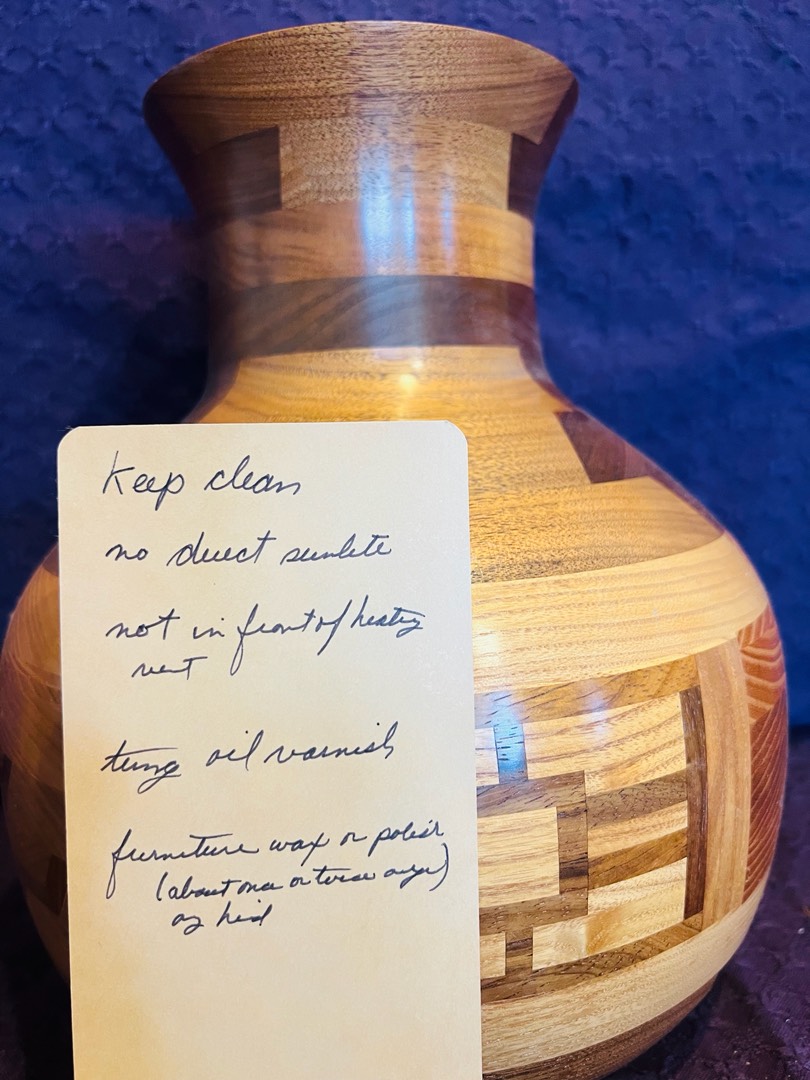 Keep clean
no direct sunlite
not in front of heating
vent
tung oil varnish
furniture wax or polish
(about once or twice a yr)
any kind